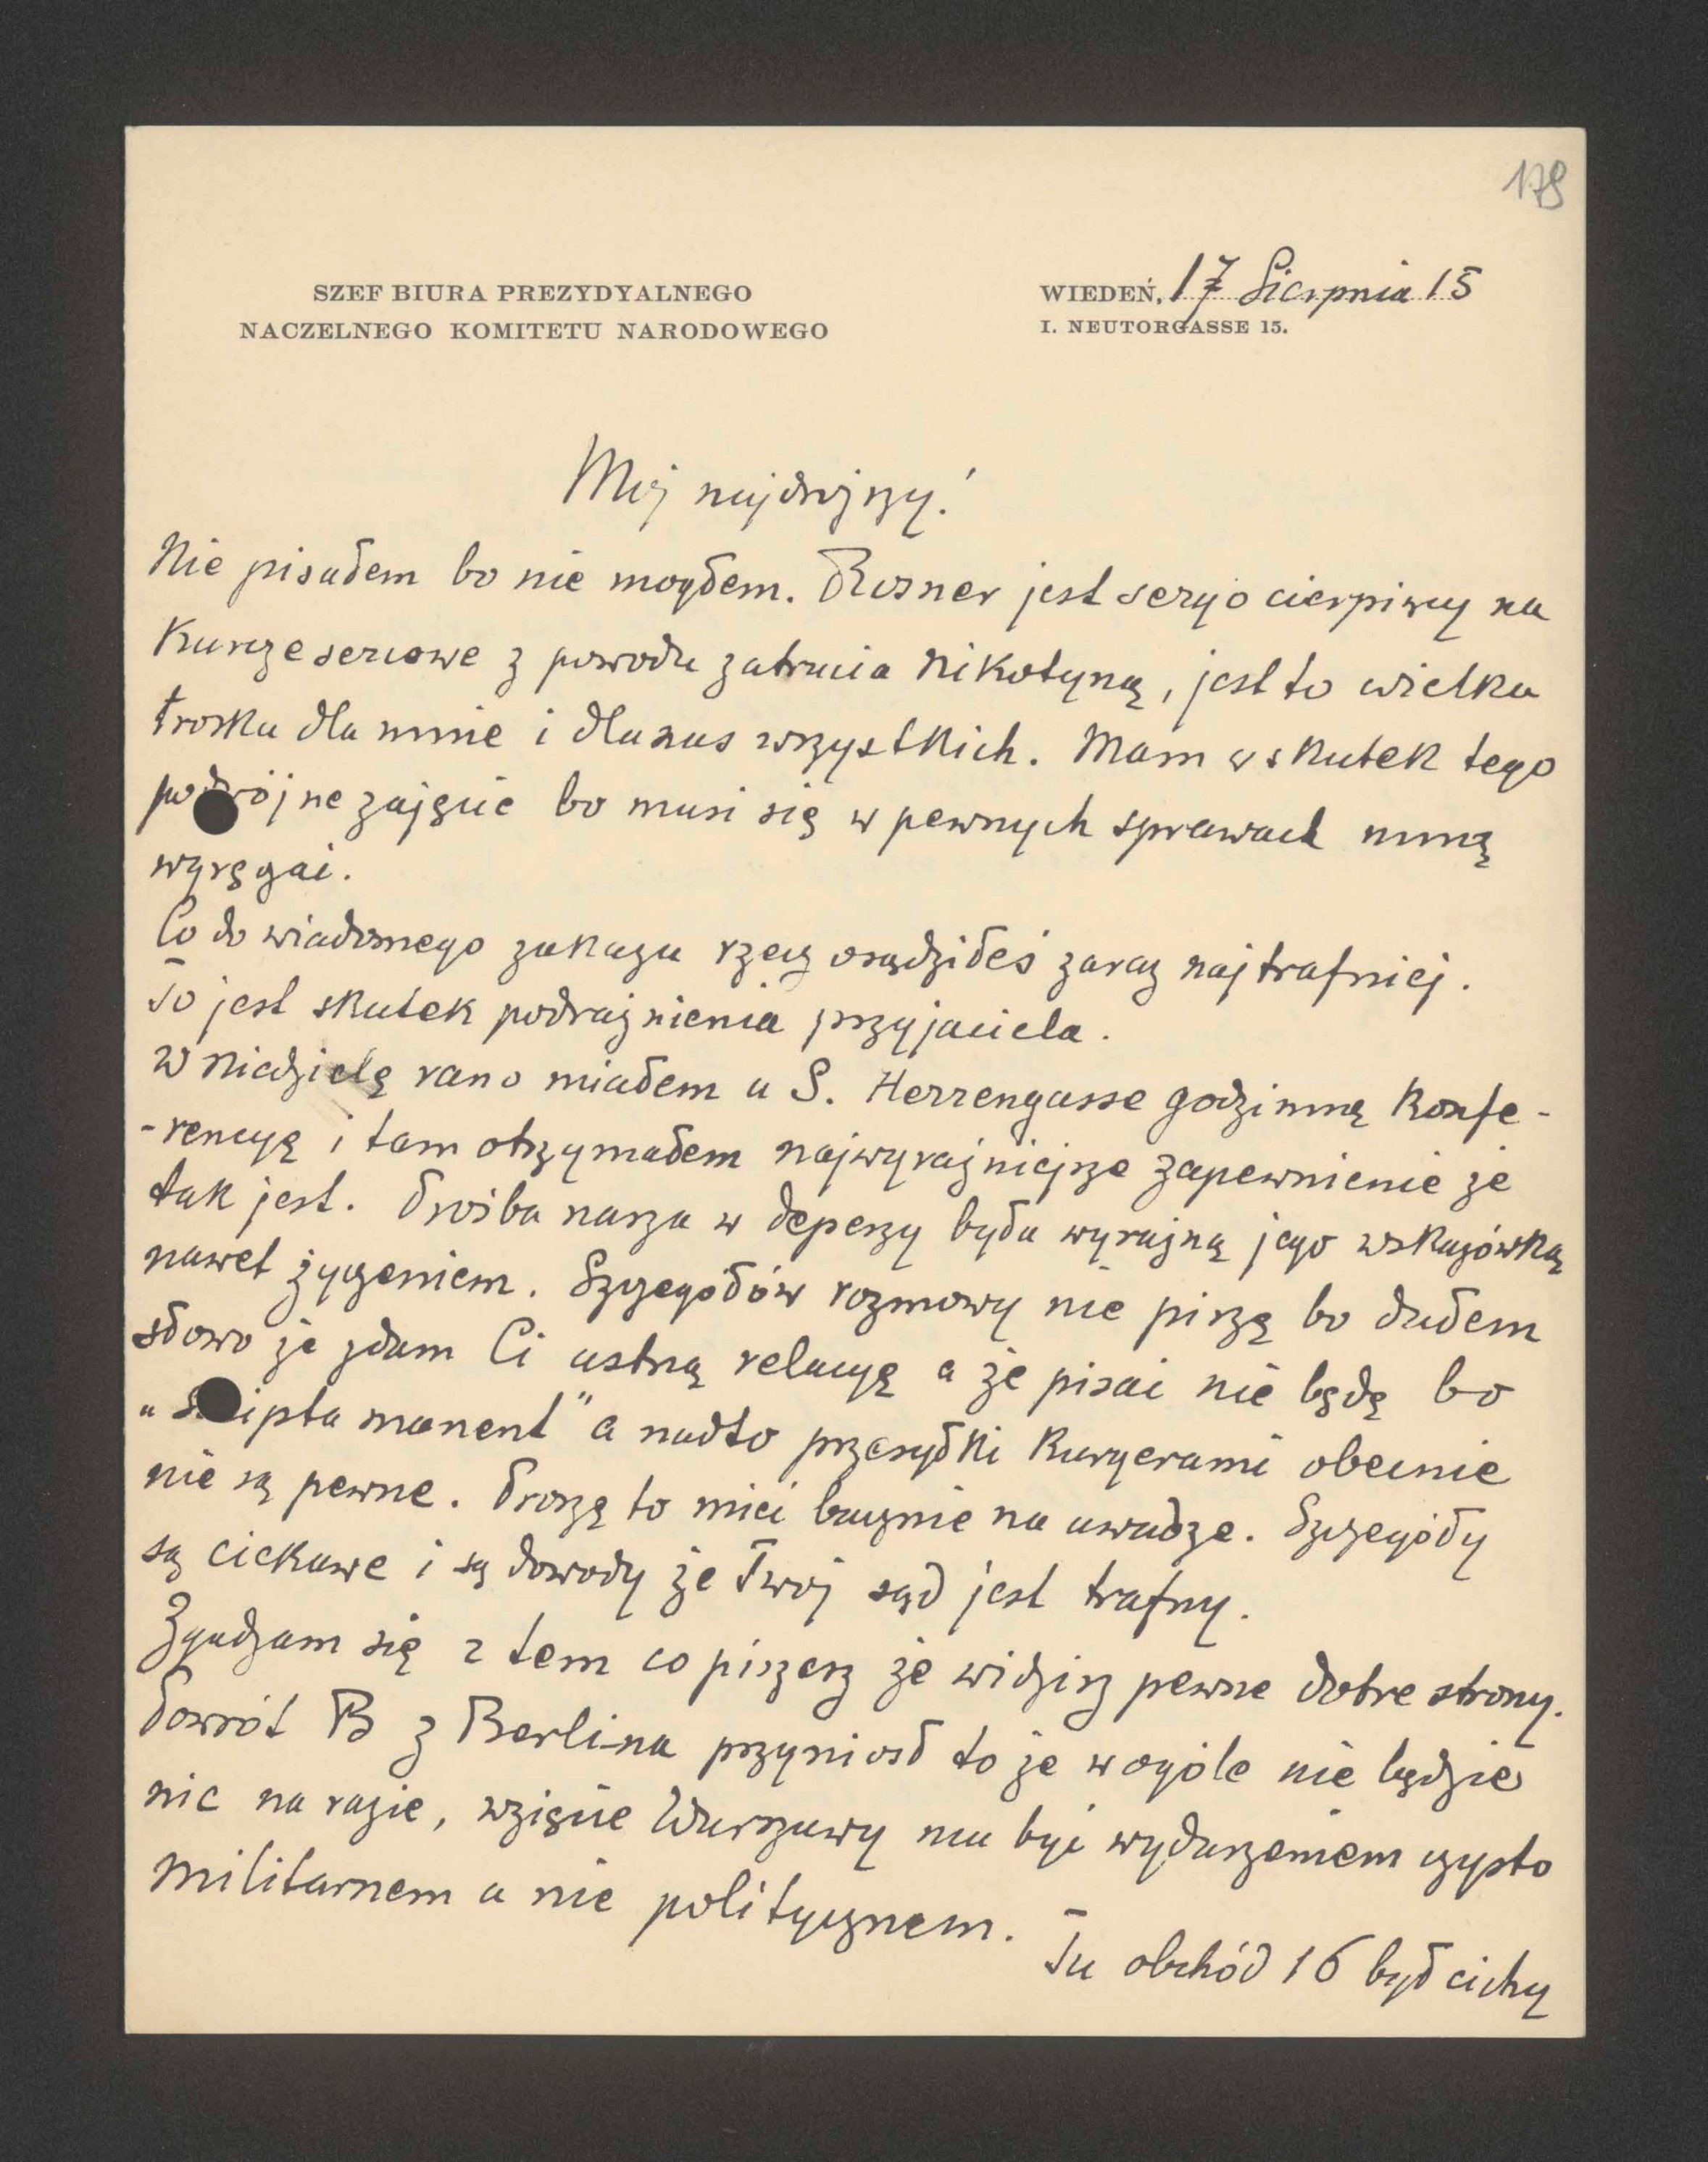 178
SZEF BIURA PREZYDYALNEGO
NACZELNEGO KOMITETU NARODOWEGO
WIEDEŃ, 17 Sierpnia 15
I. NEUTORGASSE 15.
Mój najdroższy!
Nie pisałem bo nie mogłem. Rosner jest seryo cierpiący na
kurcze sercowe z powodu zatrucia nikotyną, jest to wielka
troska dla mnie i dla nas wszystkich. Mam wskutek tego
podwójne zajęcie bo musi się w pewnych sprawach mną
wyręczać.
Co do wiadomego zakazu rzecz osądziłeś zaraz najtrafniej.
To jest skutek podrażnienia przyjaciela.
W niedzielę rano miałem u S. Herrengasse godzinną konfe-
-rencyę i tam otrzymałem najwyraźniejsze zapewnienie że
tak jest. Prośba nasza w depeszy była wyraźną jego wskazówką
nawet życzeniem. Szczegółów rozmowy nie piszę bo dałem
słowo że zdam Ci ustną relacyę a że pisać nie będę bo
"scripta manent" a nadto przesyłki kuryerami obecnie
nie są pewne. Proszę to mieć bacznie na uwadze. Szczegóły
są ciekawe i są dowody że Twój sąd jest trafny.
Zgadzam się z tem co piszesz że widzisz pewne dobre strony.
Powrót B z Berlina przyniósł to że wogóle nie będzie
nic na razie, wzięcie Warszawy ma być wydarzeniem czysto
militarnem a nie politycznem. Tu obchód 16 był cichy